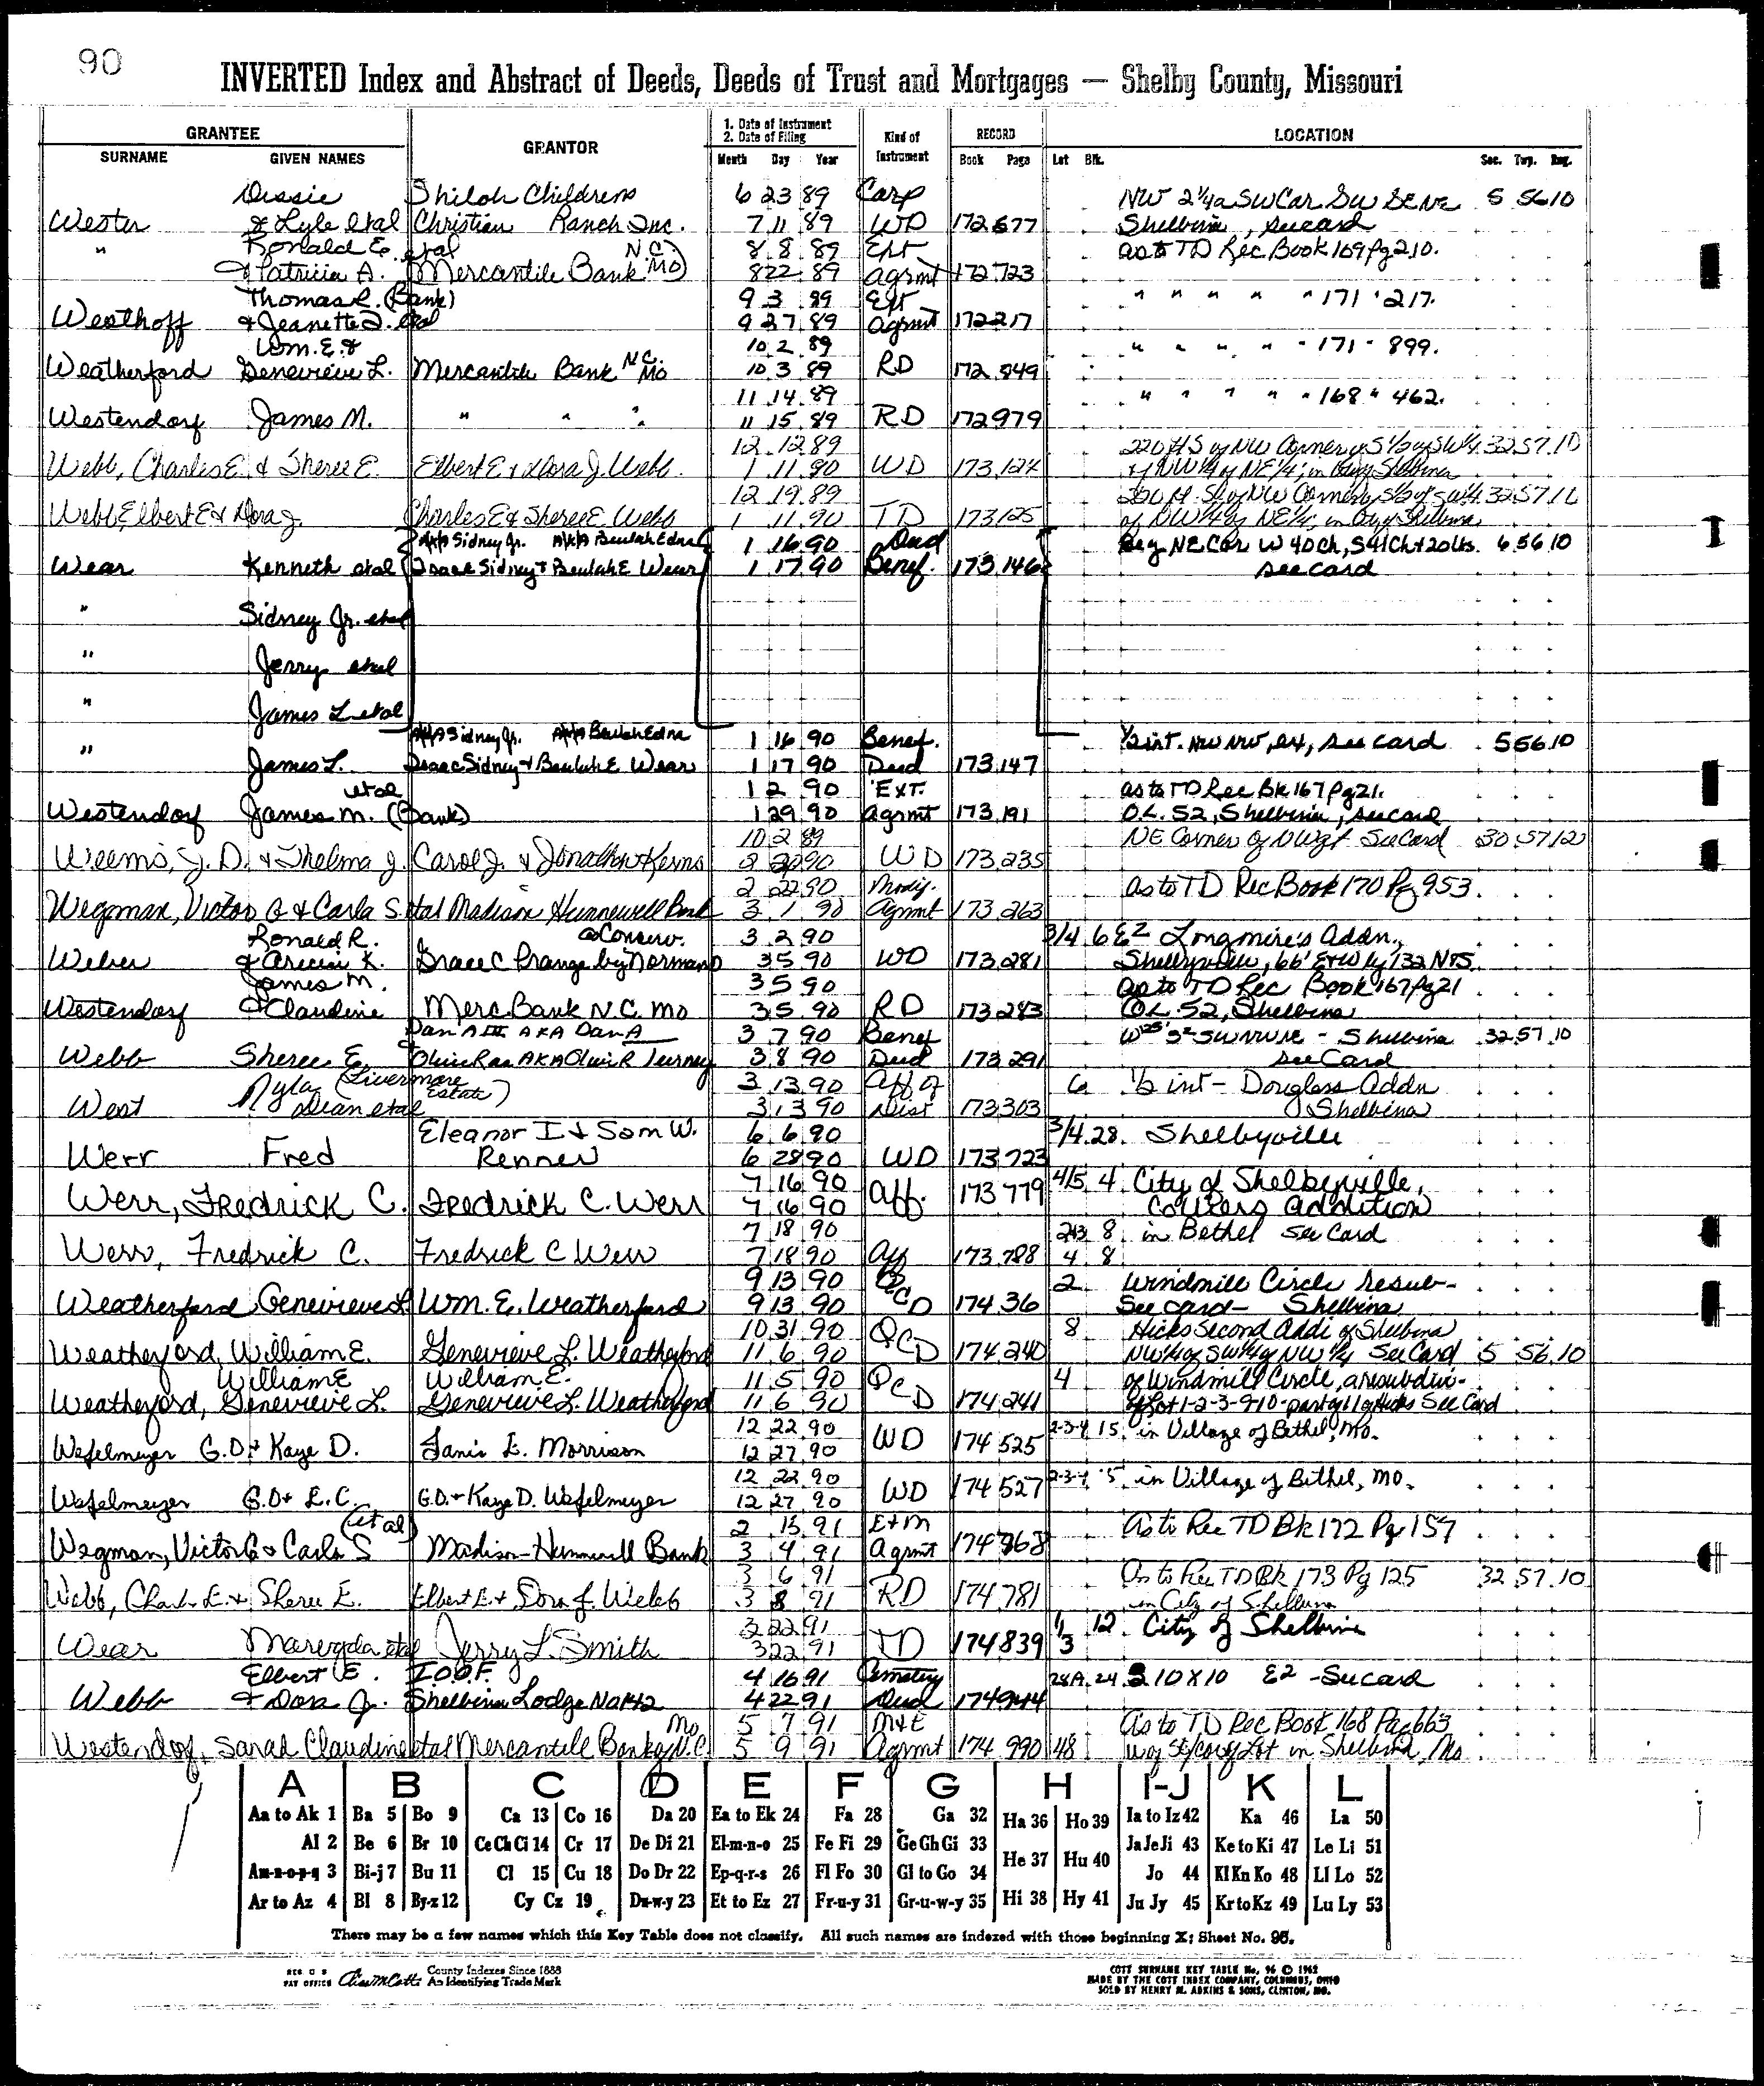 90
INVERTED Index and Abstract of Deeds, Deeds of Trust and Mortgages — Shelby County, Missouri
GRANTEE GRANTOR 1. Date of Instrument 2. Date of Filing Kind of Instrument RECORD LOCATION
SURNAME GIVEN NAMES Month Day Year Book Page Lot Blk. Sec. Twp. Rng.
Dessie Shiloh Childrens 6 23 89 Corp NW 2 1/4a SW Cor SW SE NE 5 56 10
Wester & Lyle etal Christian Ranch Inc. 7 11 89 WD 172 577 Shelbina, see card
" Ronald E. etal N.C. 8 8 89 Ext as to TD Rec Book 169 Pg 210.
& Patricia A. Mercantile Bank MO 8 22 89 agrmt 172 723
Thomas R. (Bank) 9 3 89 Ext " " " " " 171 " 217.
Westhoff & Jeanette L. etal 9 27 89 agrmt 172 217
Wm. E. & 10 2 89 " " " " " 171 " 899.
Weatherford Genevieve L. Mercantile Bank N.C. Mo 10 3 89 RD 172 849
11 14 89 " " " " " 168 " 462.
Westendorf James M. " " " 11 15 89 RD 172 979
12 12 89 220 ft S of NW Corner of S 1/2 of SW 1/4 32 57 10
Webb, Charles E. & Sheree E. Elbert E & Dora J. Webb 1 11 90 WD 173 124 of NW 1/4 of NE 1/4; in City of Shelbina
12 19 89 220 ft S of NW Corner of S 1/2 of SW 1/4 32 57 10
Webb, Elbert E & Dora J. Charles E & Sheree E. Webb 1 11 90 TD 173 125 of NW 1/4 of NE 1/4, in City of Shelbina
A/K/A Sidney Jr. A/K/A Beulah Edna 1 16 90 Deed Beg NE Cor W 40 Ch, S 41 Ch & 20 lks. 6 56 10
Wear Kenneth etal Isaac Sidney & Beulah E Wear 1 17 90 Benef. 173 146 see card
" Sidney Jr. etal
" Jerry etal
" James L etal
A/K/A Sidney Jr. A/K/A Beulah Edna 1 16 90 Benef. 1/2 int. NW NW, ex, see card 5 56 10
" James L. Isaac Sidney & Beulah E Wear 1 17 90 Deed 173 147
etal 1 2 90 EXT. as to TD Rec Bk 167 Pg 21.
Westendorf James M. (Bank) 1 29 90 agrmt 173 191 O.L. 52, Shelbina, see card
10 2 89 NE Corner of NW 1/4 See Card 30 57 12
Weems, J. D. & Thelma J. Carol J. & Jonathan Kerns 2 90 WD 173 235
2 22 90 Modif. as to TD Rec Book 170 Pg 953
Wegman, Victor G & Carla S. etal Madison Hunnewell Bank 3 1 90 Agrmt 173 263
Ronald R. Conserv. 3 2 90 3/4 6 E2 Longmire's Addn.,
Weber & K. Grace C Prange by Norman 3 5 90 WD 173 281 Shelbyville, 66' E&W by 132 N&S.
James M. 3 5 90 as to TD Rec Book 167 Pg 21
Westendorf & Claudine Merc Bank N.C. Mo 3 5 90 RD 173 283 O.L. 52, Shelbina
Dan A III AKA Dan A 3 7 90 Benef W 25' S2 SW NW NE - Shelbina 32 57 10
Webb Sheree E. Olive Rae AKA Olive R Turney 3 8 90 Deed 173 291 see Card
Nyla (Livermore Estate) 3 13 90 Aff of 6 1/2 int - Douglass Addn
West Dean etal 3 13 90 Dist 173 303 Shelbina
Eleanor I & Sam W. 6 6 90 3/4 28 Shelbyville
Werr Fred Renner 6 28 90 WD 173 723
7 16 90 4/5 4 City of Shelbyville,
Werr, Fredrick C. Fredrick C. Werr 7 16 90 Aff. 173 779 Addition
7 18 90 2&3 8 in Bethel See Card
Werr, Fredrick C. Fredrick C Werr 7 18 90 Aff 173 788 4 8
9 13 90 2 Windmill Circle resub-
Weatherford, Genevieve L Wm. E. Weatherford 9 13 90 QCD 174 36 See card - Shelbina
10 31 90 QCD 8 Hicks Second Addi of Shelbina
Weatherford, William E. Genevieve L. Weatherford 11 6 90 174 240 NW 1/4 of SW 1/4 of NW 1/4 See Card 5 56 10
William E William E. 11 5 90 QCD 4 of Windmill Circle, a resubdivi-
Weatherford, Genevieve L. Genevieve L. Weatherford 11 6 90 174 241 of Lot 1-2-3-9-10-part of 11 of Hicks See Card
12 22 90 2-3-4 15 in Village of Bethel, Mo.
Wefelmeyer G.D. & Kaye D. Janis L. Morrison 12 27 90 WD 174 525
12 22 90 2-3-4 5 in Village of Bethel, MO.
Wefelmeyer G.D & L.C. G.D. & Kaye D. Wefelmeyer 12 27 90 WD 174 527
(et al) 2 15 91 E & M As to Rec TD Bk 172 Pg 157
Wegman, Victor G & Carla S Madison-Hunnewell Bank 3 4 91 Agrmt 174 768
3 6 91 As to Rec TD Bk 173 Pg 125 32 57 10
Webb, Charles E. & Sheree E. Elbert E. & Dora J. Webb 3 8 91 RD 174 781 in City of Shelbina
3 22 91 1/3 12 City of Shelbina
Wear etal Jerry L. Smith 3 22 91 TD 174 839
Elbert E. I.O.O.F. 4 16 91 Cemetery 28A 24 10 X 10 E2 - See card
Webb & Dora J. Shelbina Lodge No 142 4 22 91 Deed 174 944
5 7 91 M&E As to TD Rec Book 168 Pg 663
Westendorf, Sarah Claudine etal Mercantile Bank of N.C. Mo 5 9 91 Agrmt 174 990 48 Lot in Shelbina, Mo
A B C D E F G H I-J K L
Aa to Ak 1 Ba 5 Bo 9 Ca 13 Co 16 Da 20 Ea to Ek 24 Fa 28 Ga 32 Ha 36 Ho 39 Ia to Iz 42 Ka 46 La 50
Al 2 Be 6 Br 10 Ce Ch Ci 14 Cr 17 De Di 21 El-m-n-o 25 Fe Fi 29 Ge Gh Gi 33 He 37 Hu 40 Ja Je Ji 43 Ke to Ki 47 Le Li 51
Am-n-o-p-q 3 Bi-j 7 Bu 11 Cl 15 Cu 18 Do Dr 22 Ep-q-r-s 26 Fl Fo 30 Gl to Go 34 Jo 44 Kl Kn Ko 48 Ll Lo 52
Ar to Az 4 Bl 8 By-z 12 Cy Cz 19 Du-w-y 23 Et to Ez 27 Fr-u-y 31 Gr-u-w-y 35 Hi 38 Hy 41 Ju Jy 45 Kr to Kz 49 Lu Ly 53
There may be a few names which this Key Table does not classify. All such names are indexed with those beginning X; Sheet No. 96.
REG. U S PAT OFFICE County Indexes Since 1888 An Identifying Trade Mark
COTT SURNAME KEY TABLE No. 96 © 1962
MADE BY THE COTT INDEX COMPANY, COLUMBUS, OHIO
SOLD BY HENRY M. ADKINS & SONS, CLINTON, MO.